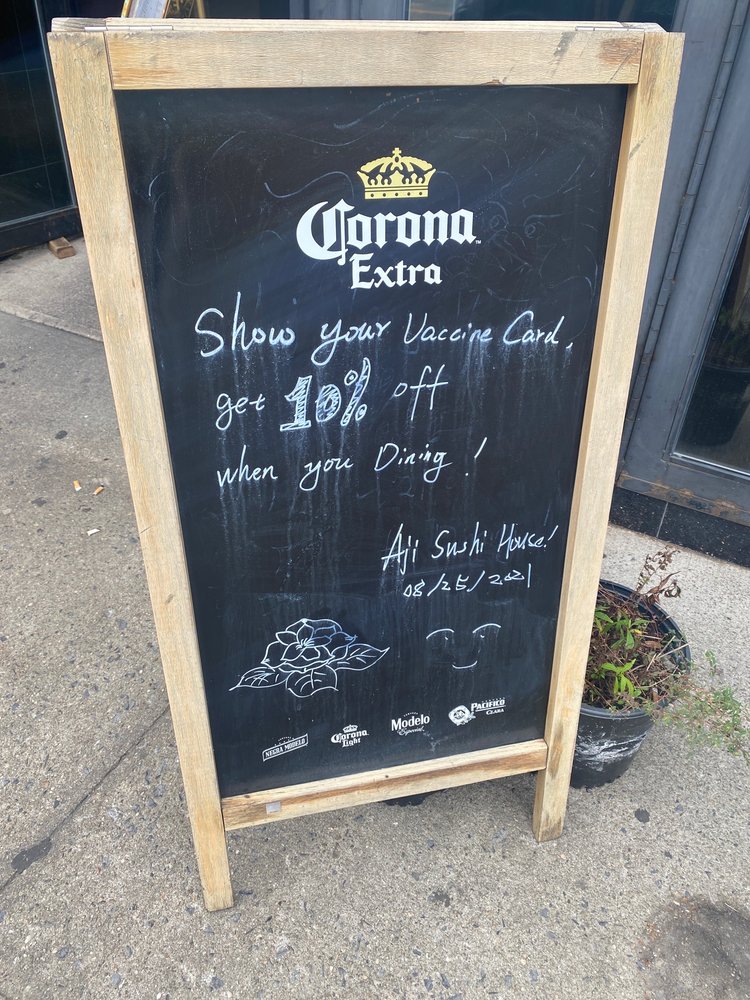 Corona
Extra
Show your Vaccine Card,
get 10% off
when you Dining!
Aji Sushi House!
08/25/2021
NEGRA MODELO
Corona
Light
Modelo
Especial
PACIFICO
CLARA